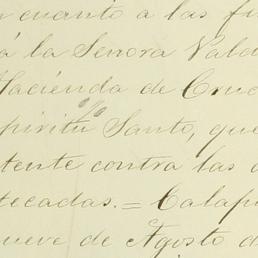 cuanto a las
á la Señora Vald
Hacienda de Cruc
spiritu Santo, que
tente contra las
tecadas. = Calap
ueve de Agosto d